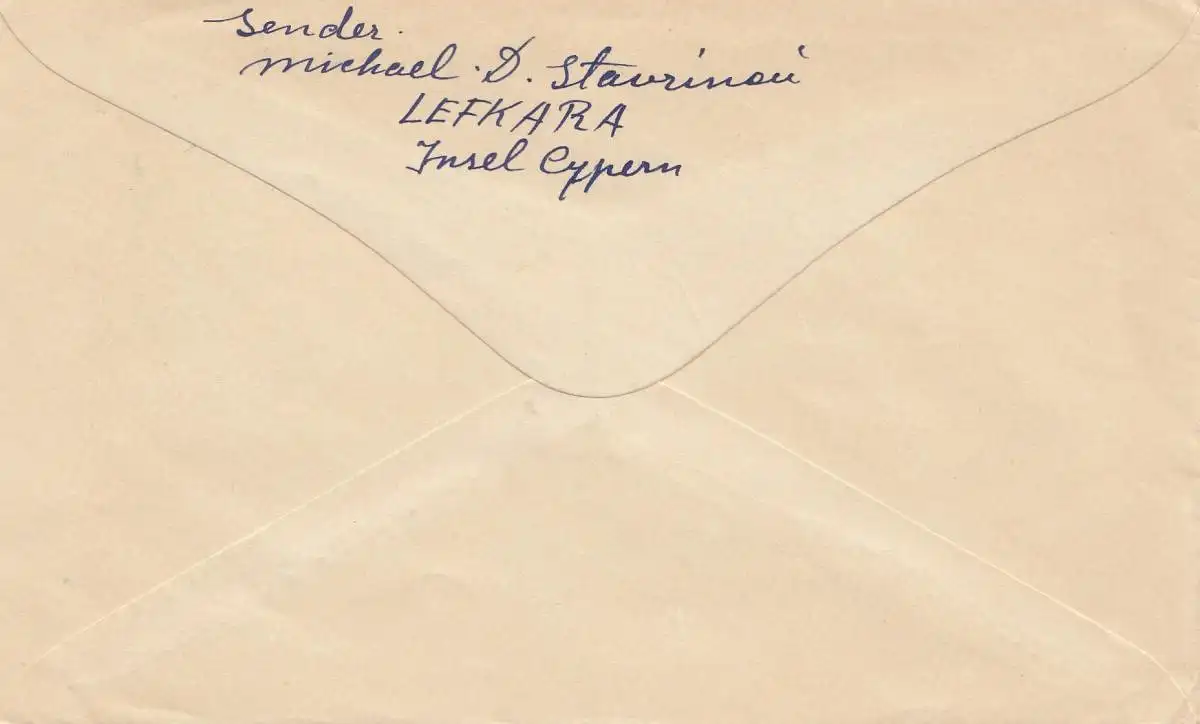 Sender.
Michael. D. Stavrinou
LEFKARA
Insel Cypern